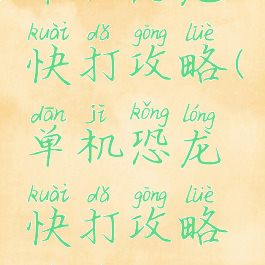 kuài dǎ gōng lüè
快打攻略(
dān jī kǒng lóng
单机恐龙
kuài dǎ gōng lüè
快打攻略